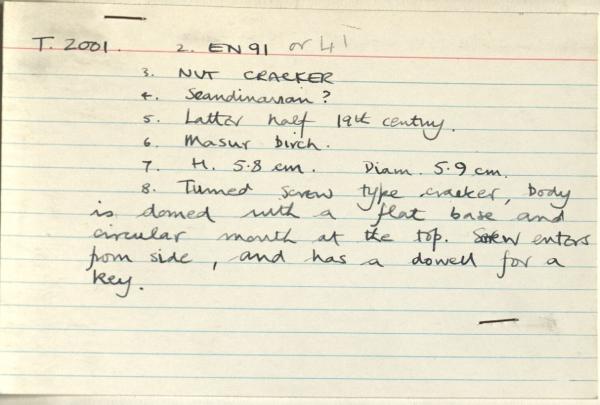 T. 2001. 2. EN 91 or 41
3. NUT CRACKER
4. Scandinavian?
5. Latter half 19th century.
6. Masur birch.
7. H. 5.8 cm. Diam. 5.9 cm.
8. Turned screw type cracker, body
is domed with a flat base and
circular mouth at the top. Screw enters
from side, and has a dowell for a
key.